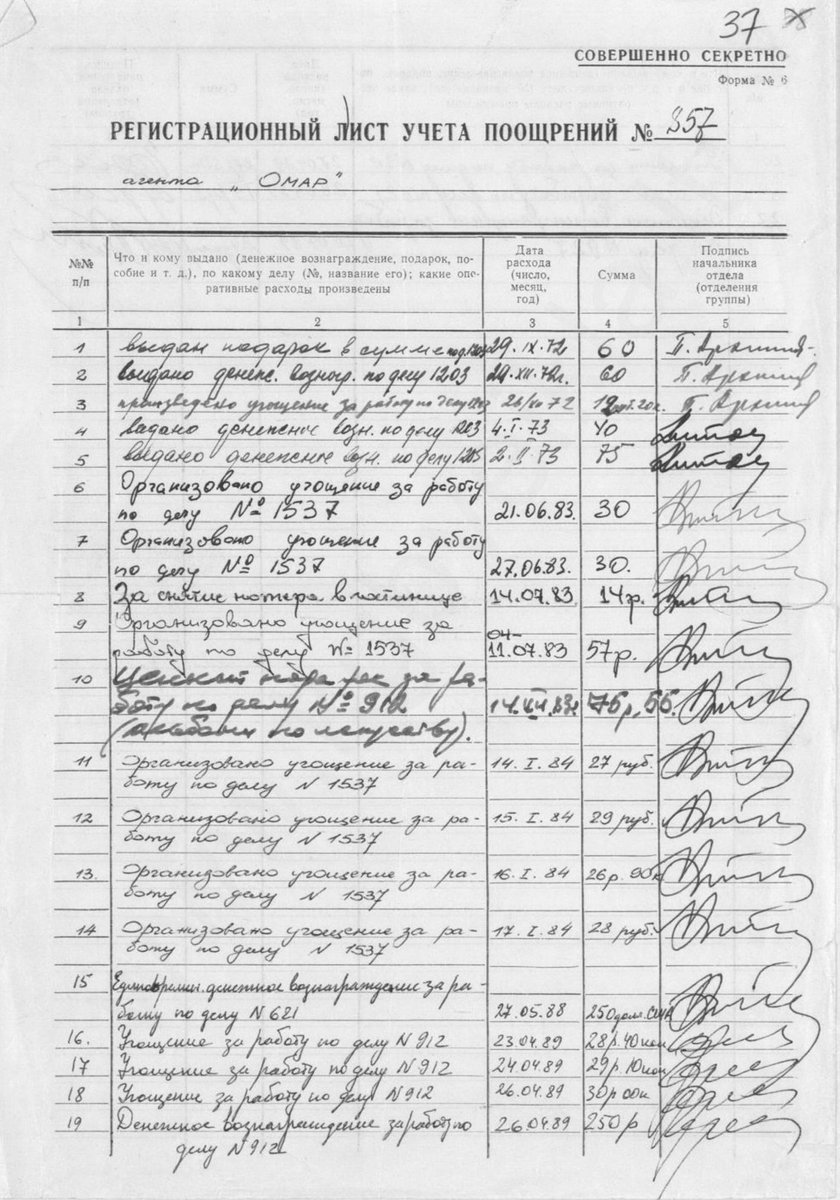 37
СОВЕРШЕННО СЕКРЕТНО
Форма № 6
РЕГИСТРАЦИОННЫЙ ЛИСТ УЧЕТА ПООЩРЕНИЙ № 357
агента „ОМАР"
№№ п/п
Что и кому выдано (денежное вознаграждение, подарок, по-
собие и т. д.), по какому делу (№, название его); какие опе-
ративные расходы произведены
Дата
расхода
(число,
месяц,
год)
Сумма
Подпись
начальника
отдела
(отделения
группы)
1 2 3 4 5
1 выдан подарок в сумме 29.IX.72 60
2 выдано денеж. вознагр. по делу 1203 29.XII.72г. 60
3 произведено угощение за работу по делу 72
4 выдано денежное возн. по делу 1203 4.I.73 40
5 выдано денежное возн. по делу 1203 2.II.73 75
6 Организовано угощение за работу
по делу № 1537 21.06.83. 30
7 Организовано угощение за работу
по делу № 1537 27.06.83. 30.
8 За снятие номера в гостинице 14.07.83 14р.
9 Организовано угощение за
04-
работу по делу № 1537 11.07.83 57р.
10 Ценный подарок за ра-
боту по делу № 912 76р.
11 Организовано угощение за ра- 14.I.84 27 руб.
боту по делу N 1537
12 Организовано угощение за ра- 15.I.84 29 руб.
боту по делу N 1537
13. Организовано угощение за ра- 16.I.84 26р. 90к
боту по делу N 1537
14 Организовано угощение за ра- 17.I.84 28 руб.
боту по делу N 1537
15 Единоврем. денежное вознаграждение за ра-
боту по делу N 621 27.05.88 250 долл. США
16. Угощение за работу по делу N 912 23.04.89 28р. 40коп
17 Угощение за работу по делу N 912 24.04.89 29р. 10коп
18 Угощение за работу по делу N 912 26.04.89 30р 00к
19 Денежное вознаграждение за работу по 26.04.89 250р
делу N 912